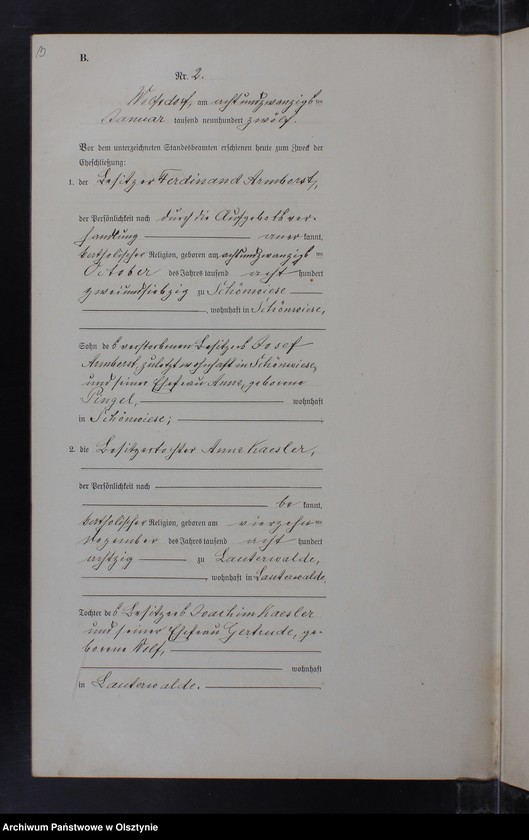 B.
Nr. 2.
Wolfsdorf, am achtundzwanzigsten
Januar tausend neunhundert zwölf.
Vor dem unterzeichneten Standesbeamten erschienen heute zum Zweck der
Eheschließung:
1. der Besitzer Ferdinand Armborst,
der Persönlichkeit nach durch die Aufgebotsver-
handlung anerkannt,
katholischer Religion, geboren am achtundzwanzigsten
October des Jahres tausend acht hundert
zweiundsiebzig zu Schönwiese
, wohnhaft in Schönwiese,
Sohn des verstorbenen Besitzers Josef
Armborst, zuletzt wohnhaft in Schönwiese,
und seiner Ehefrau Anne, geborene
Pingel, wohnhaft
in Schönwiese;
2. die Besitzertochter Anne Kaesler,
der Persönlichkeit nach
be kannt,
katholischer Religion, geboren am vierzehnten
November des Jahres tausend acht hundert
achtzig zu Lauterwalde,
, wohnhaft in Lauterwalde,
Tochter des Besitzers Joachim Kaesler
und seiner Ehefrau Gertrude, ge-
borene Wolf,
wohnhaft
in Lauterwalde.
Archiwum Państwowe w Olsztynie